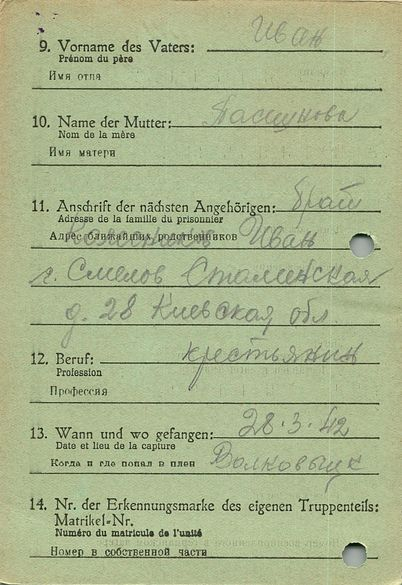 9. Vorname des Vaters: Иван
Prénom du père
Имя отца
10. Name der Mutter: Пастунова
Nom de la mère
Имя матери
11. Anschrift der nächsten Angehörigen: брат
Adresse de la famille du prisonnier
Адрес ближайших родственников Иван
г. Смелов Сталинская
д. 28 Киевская обл.
12. Beruf: крестьянин
Profession
Профессия
13. Wann und wo gefangen: 28.3.42
Date et lieu de la capture
Когда и где попал в плен Волковыцк
14. Nr. der Erkennungsmarke des eigenen Truppenteils:
Matrikel-Nr.
Numéro du matricule de l'unité
Номер в собственной части